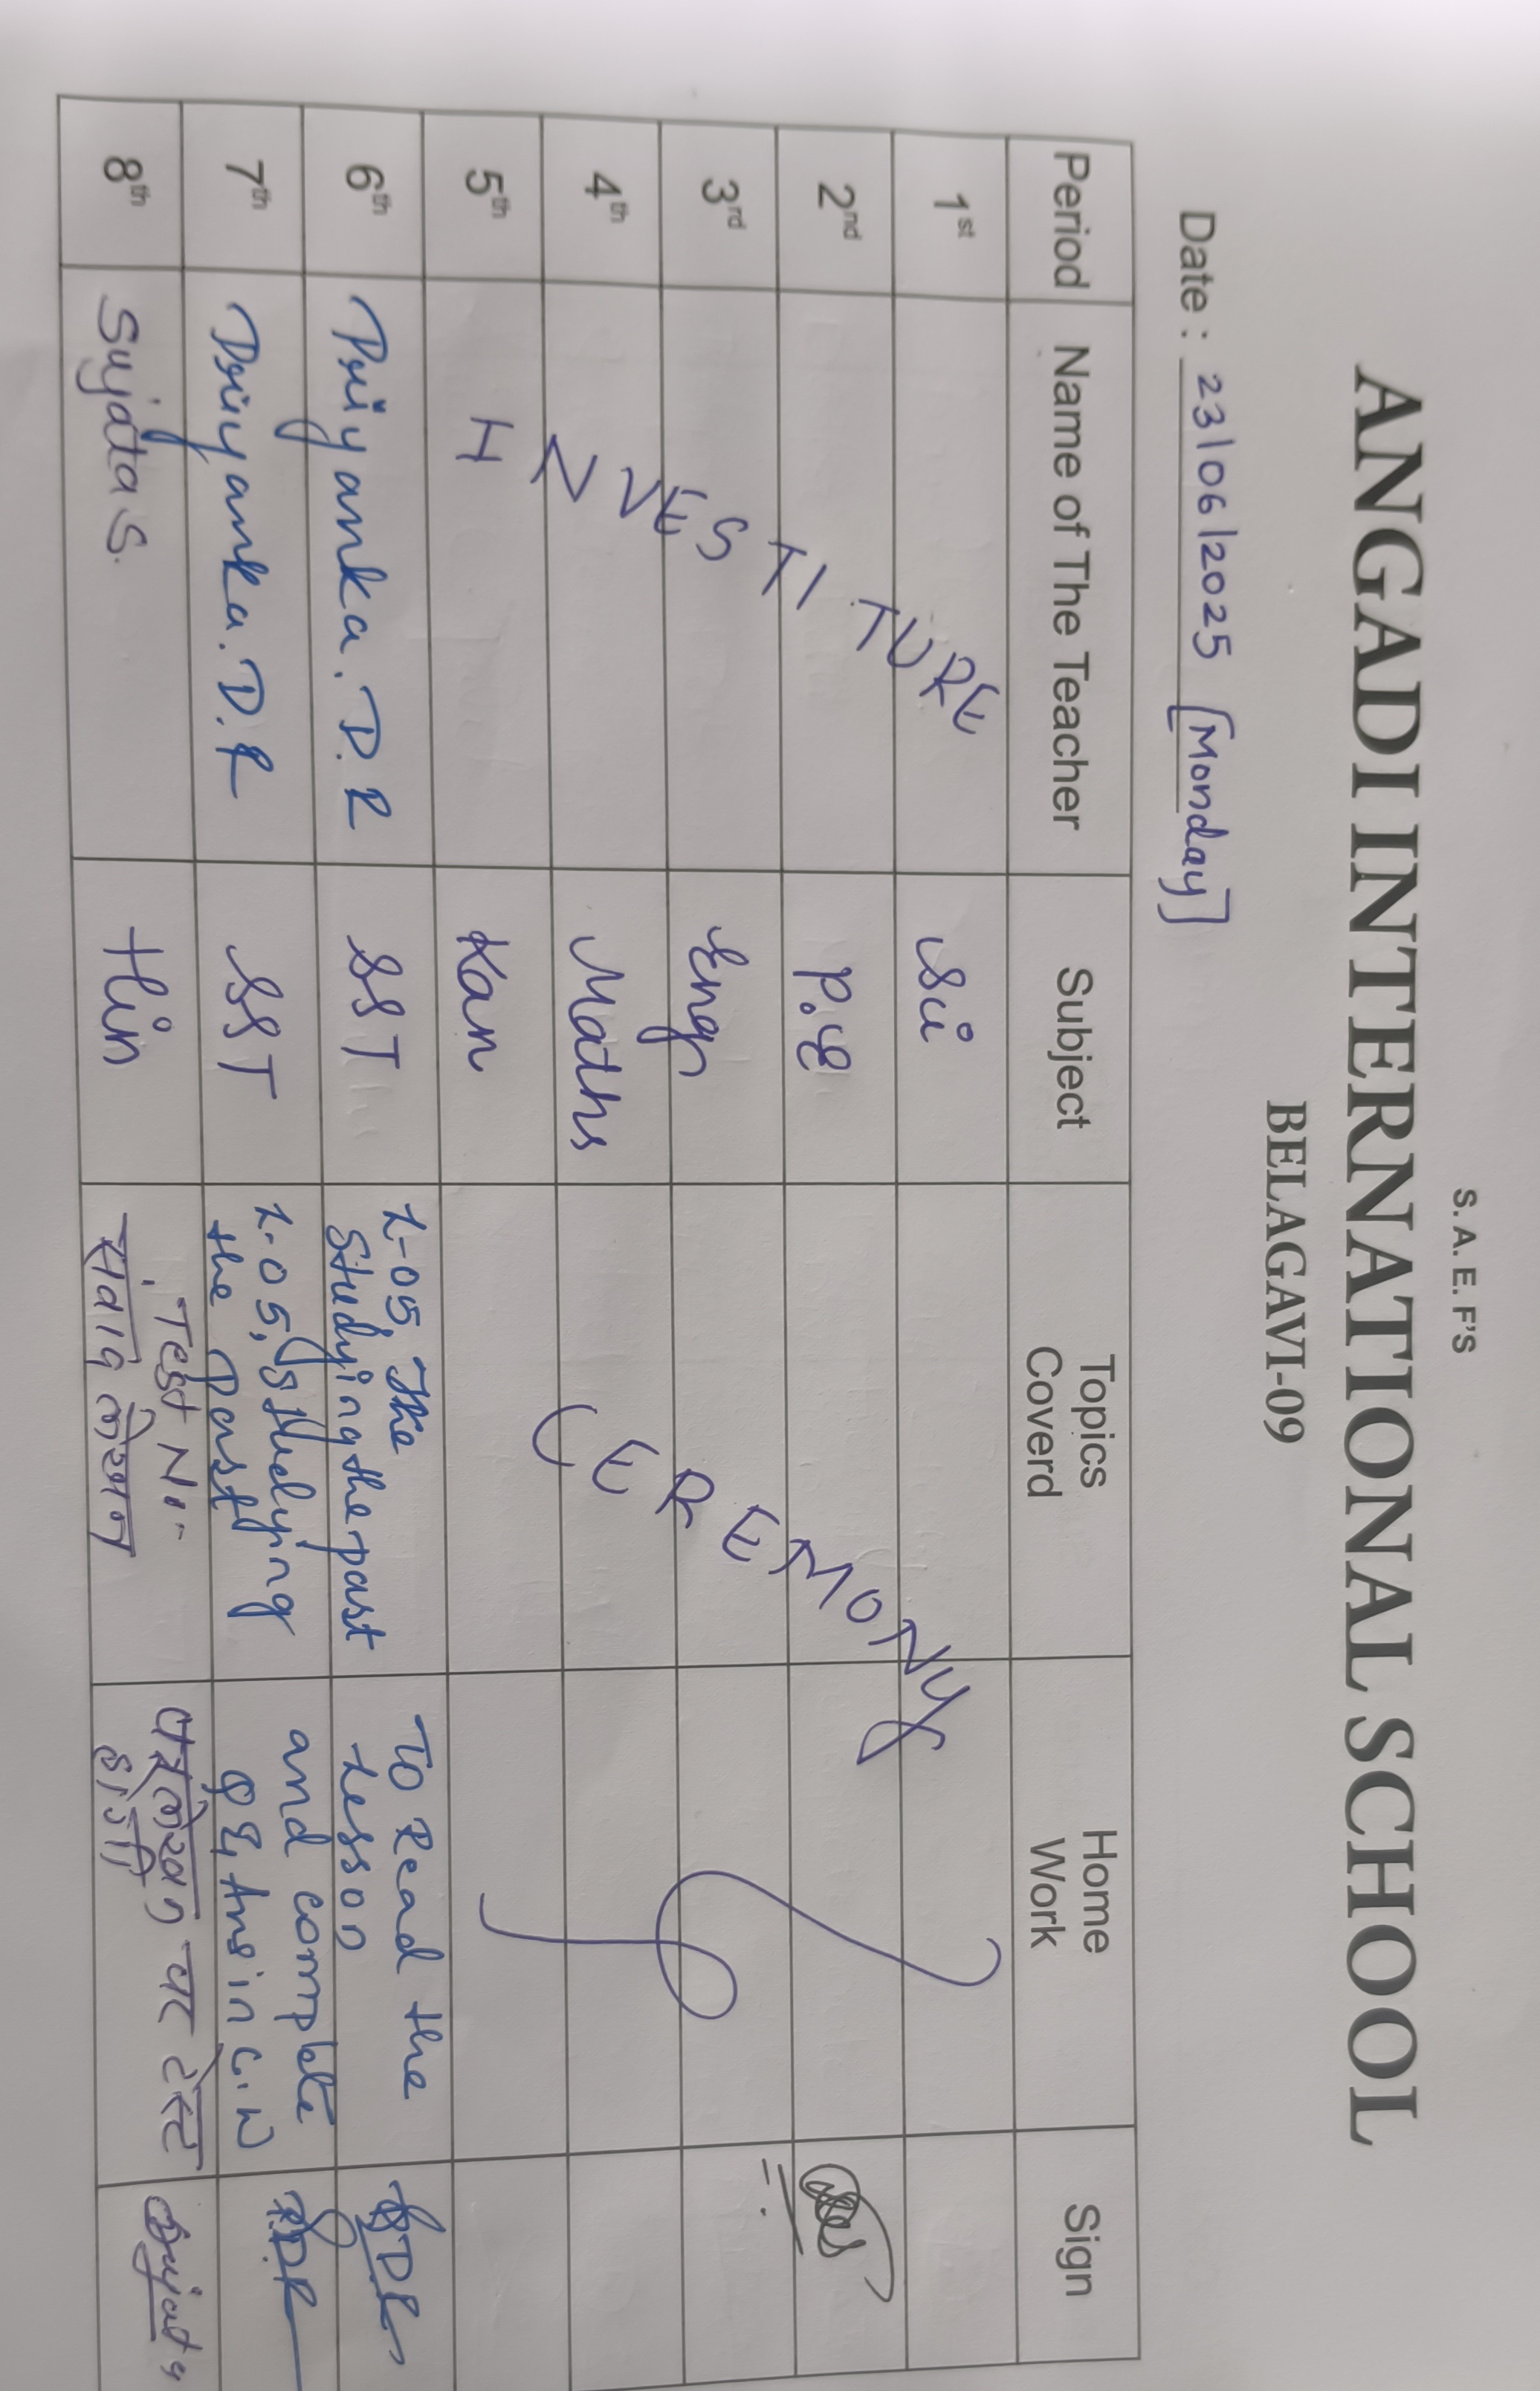 S. A. E. F'S
ANGADI INTERNATIONAL SCHOOL
BELAGAVI-09
Date : 23/06/2025 [Monday]
Period Name of The Teacher Subject Topics Coverd Home Work Sign
1st Sci
2nd P.E
3rd Eng
4th Maths
5th Kan
INVESTITURE CEREMONY
6th Priyanka. D. R SST L-05, The Studying the past To Read the lesson
7th Priyanka. D. R SST L-05, Studying the past and complete Q & Ans in C.W
8th Sujata S. Hin Test No- संवाद लेखन टेस्ट